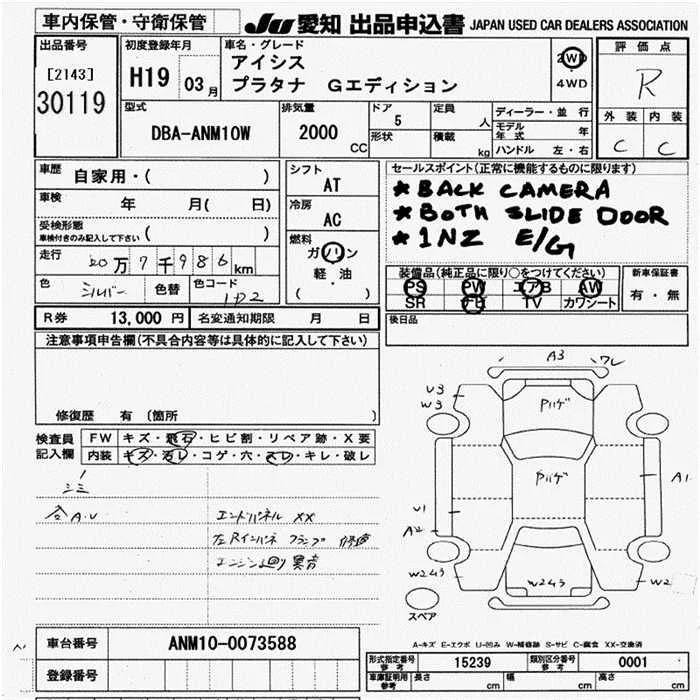 車内保管・守衛保管
JU 愛知 出品申込書 JAPAN USED CAR DEALERS ASSOCIATION
出品番号
[2143]
30119
初度登録年月
H19 03月
車名・グレード
アイシス
プラタナ Gエディション
2WD
4WD
評価点
R
外装 内装
C C
型式
DBA-ANM10W
排気量
2000 CC
ドア
5
形状
定員
人
積載
kg
ディーラー・並行
モデル年式 年
ハンドル 左・右
車歴
自家用・( )
車検
年 月( 日)
受検形態
車検付きのみ記入して下さい ( )
走行
20万7千986km
色
シルバー
色替
色コード
1D2
シフト
AT
冷房
AC
燃料
ガソリン
軽・油
( )
セールスポイント(正常に機能するものに限ります)
* BACK CAMERA
* BOTH SLIDE DOOR
* 1NZ E/G
装備品(純正品に限り○をつけてください)
PS PW エアB AW
SR ナビ TV カワシート
新車保証書
有・無
R券 13,000円 名変通知期限 月 日
後日品
注意事項申告欄(不具合内容等は具体的に記入して下さい)
修復歴 有 (箇所 )
検査員
記入欄
FW キズ・飛石・ヒビ割・リペア跡・X要
内装 キズ・汚レ・コゲ・穴・スレ・キレ・破レ
シミ
A.V
エンドパネル XX
左Rインパネ フランプ 修道
エンジン廻り 異音
A3 ワレ
U3
W3
Pハゲ
Pハゲ
A1
U1
A2
W243
W243
W2
スペア
A-キズ E-エクボ U-凹み W-補修跡 S-サビ C-腐食 XX-交換済
車台番号 ANM10-0073588
登録番号
形式指定番号
参考
15239
類別区分番号
参考
0001
車庫証明用
参考
長さ cm 幅 cm 高さ cm